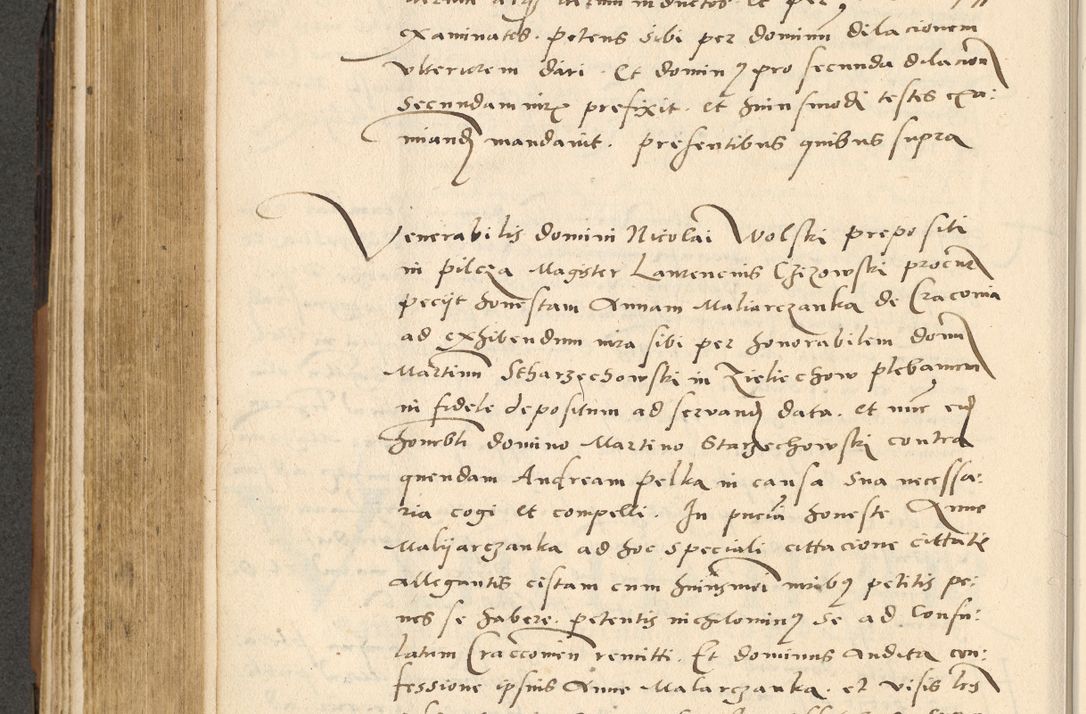 examinatos. petens sibi per dominum dilacionem
vlteriorem dari. Et dominus pro secunda dilacione
secundam iuris prefixit. et huiusmodi testes exa:
minandos mandauit. presentibus quibus supra
Venerabilis domini Nicolai Wolski prepositi
in Pilcza Magister Laurencius Czizowski procurator
pecijt honestam Annam Maliarczanka de Cracouia
ad exhibendum iura sibi per honorabilem dominum
Martinum Stharzechowski in Zieliechow plebanum
in fidele depositum ad seruandum data. et nunc eidem
honorabili domino Martino Starzechowski contra
quendam Andream Pelka in causa sua necessa:
ria cogi et compelli. In presencia honeste Anne
Malijarczanka ad hoc speciali cittacione cittate
allegantis cistam cum huiusmodi iuribus petitis pe:
nes se habere. petentis nichilominus se ad Consu:
latum Cracouiensem remitti. Et dominus audita con:
fessione ipsius Anne Malarczanka. et visis literis